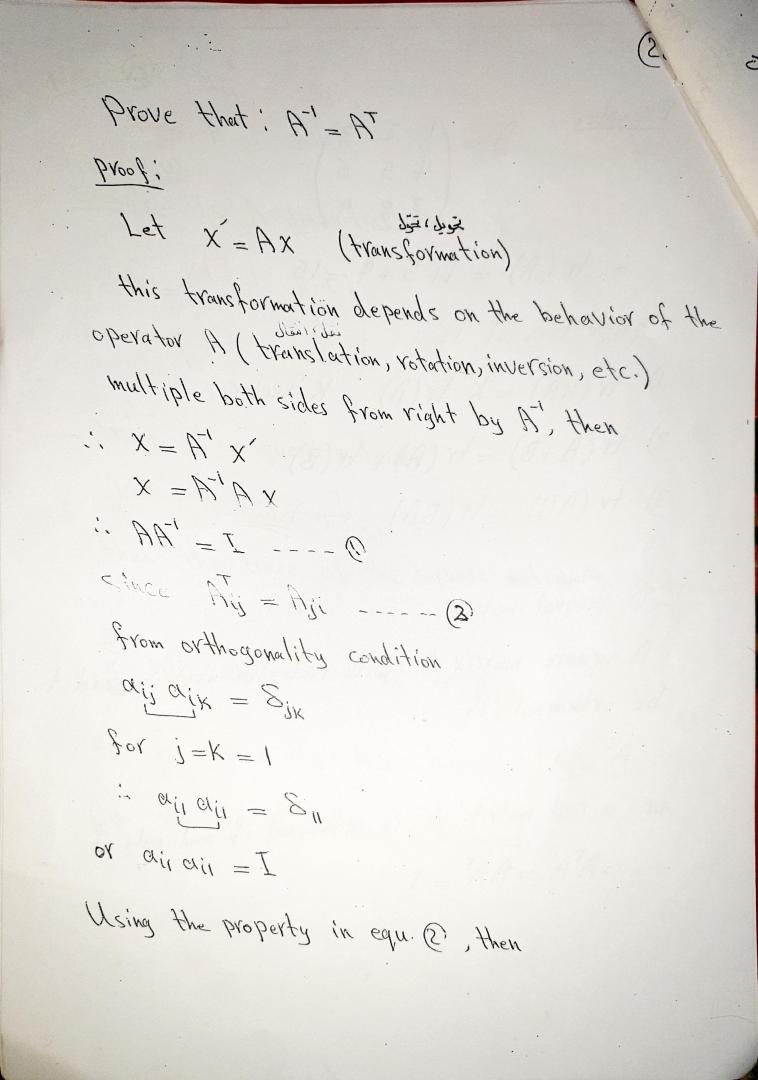 2
Prove that : A⁻¹ = Aᵀ
Proof :
تحويل ، تحوّل
Let X′ = AX (transformation)
this transformation depends on the behavior of the
نقل ، انتقال
operator A (translation, rotation, inversion, etc.)
multiple both sides from right by A⁻¹, then
∴ X = A⁻¹ X′
X = A⁻¹ A X
∴ AA⁻¹ = I ---- ①
Since Aᵀij = Aji ------ ②
from orthogonality condition
aij aik = δjk
for j = K = 1
∴ ai1 ai1 = δ11
or ai1 ai1 = I
Using the property in equ. ②, then